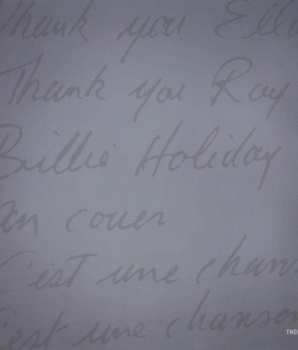 Thank you Ella
Thank you Ray
Billie Holiday
an couer
C'est une chans
c'est une chanson